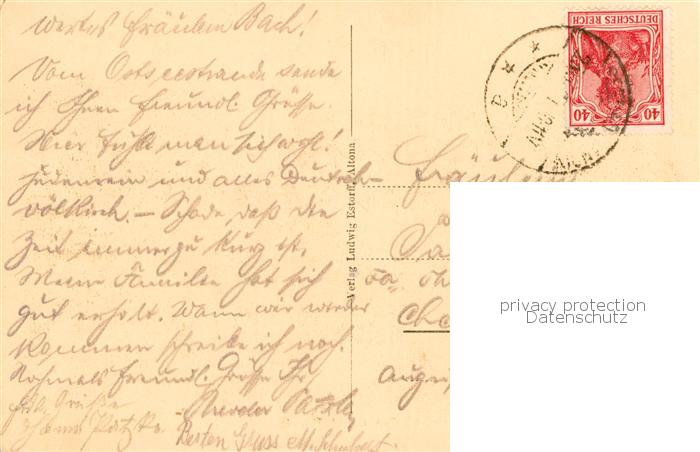 Wertes Fräulein Bach!
Vom Ostseestrande sende
ich Ihnen freundl. Grüsse.
Hier fühlt man sich wohl!
Judenrein und alles Deutsch-
völkisch. – Schade daß die
Zeit immer zu kurz ist.
Meine Familie hat sich
gut erholt. Wann wir wieder
kommen schreibe ich noch.
Nochmals freundl. Grüsse Ihr
Theodor
Grüße
Besten Gruss
Verlag Ludwig Estorff, Altona
DEUTSCHES REICH
40 40
Fräulein
privacy protection
Datenschutz